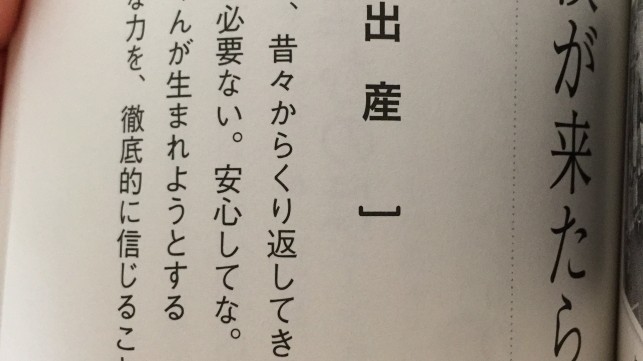 が来たら
出産】
、昔々からくり返してき
必要ない。安心してな。
んが生まれようとする
な力を、徹底的に信じるこ